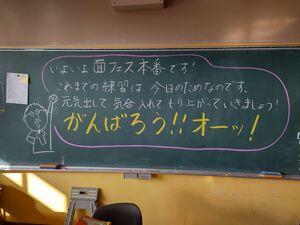 いよいよ 面フェス本番です!
これまでの練習は 今日のためなのです。
元気出して 気合入れて もり上がっていきましょう!
がんばろう!! オーッ!